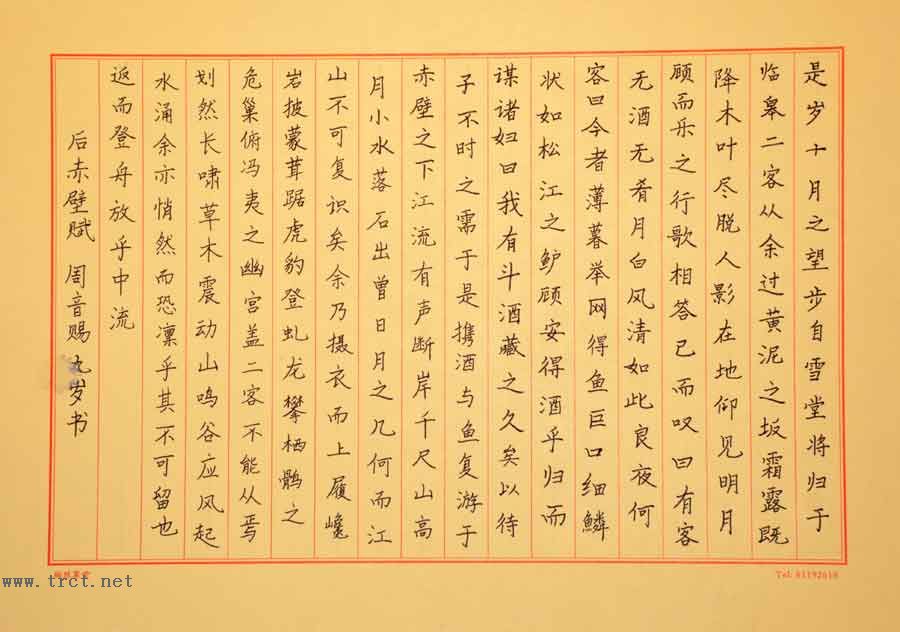 是岁十月之望步自雪堂将归于
临皋二客从余过黄泥之坂霜露既
降木叶尽脱人影在地仰见明月
顾而乐之行歌相答已而叹曰有客
无酒无肴月白风清如此良夜何
客曰今者薄暮举网得鱼巨口细鳞
状如松江之鲈顾安得酒乎归而
谋诸妇曰我有斗酒藏之久矣以待
子不时之需于是携酒与鱼复游于
赤壁之下江流有声断岸千尺山高
月小水落石出曾日月之几何而江
山不可复识矣余乃摄衣而上履巉
岩披蒙茸踞虎豹登虬龙攀栖鹘之
危巢俯冯夷之幽宫盖二客不能从焉
划然长啸草木震动山鸣谷应风起
水涌余亦悄然而恐凛乎其不可留也
返而登舟放乎中流
后赤壁赋 周音赐九岁书
www.trct.net